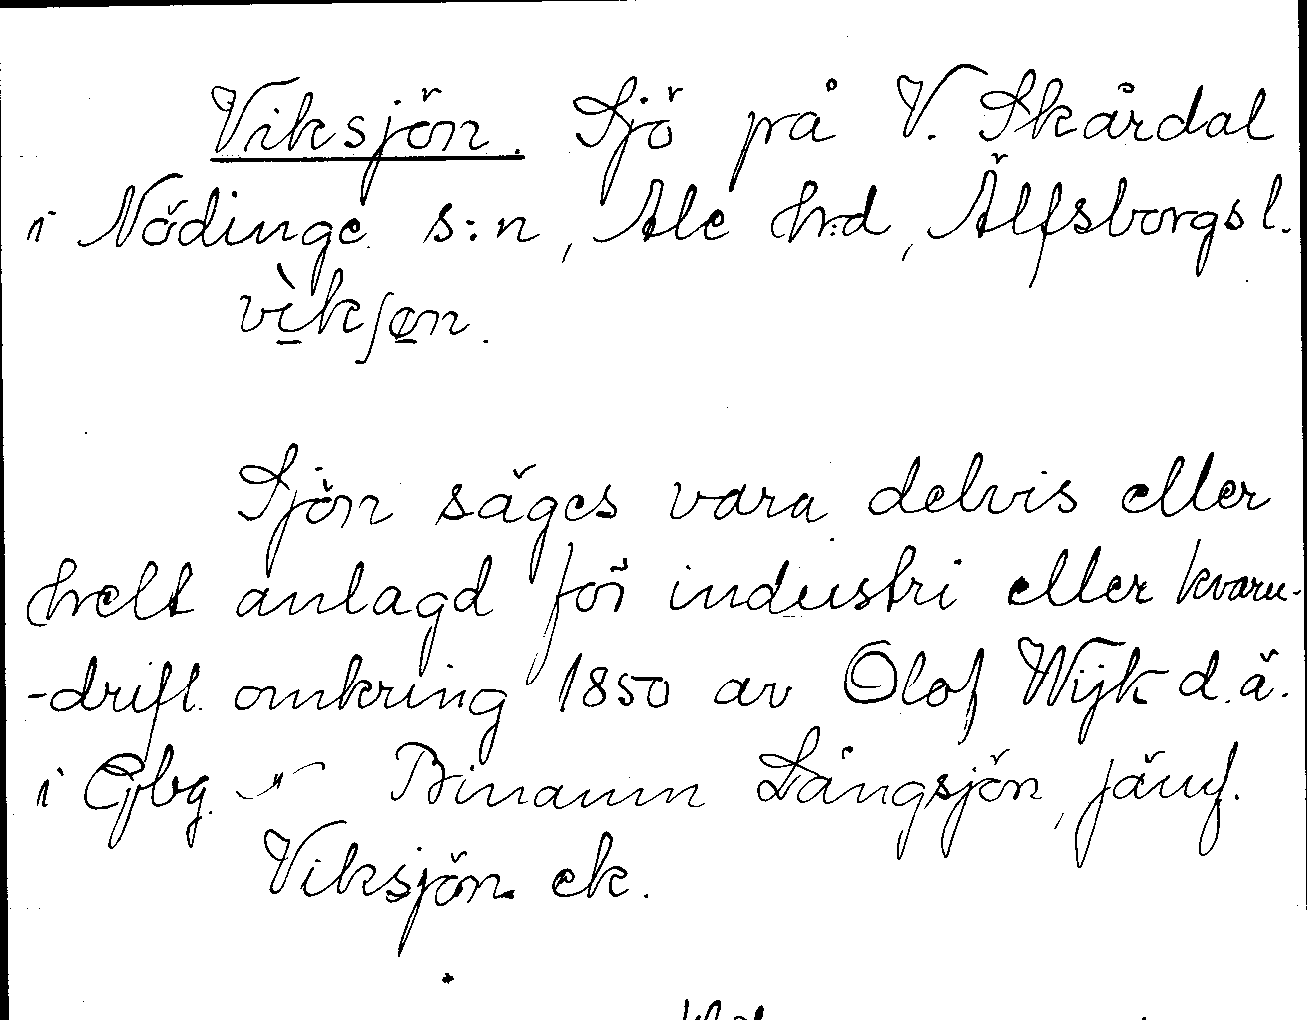 Viksjön. Sjö på V. Skårdal
i Nödinge s:n, Ale h:d, Älfsborgs l.
vìkʃøn.
Sjön säges vara delvis eller
helt anlagd för industri eller kvarn-
-drift omkring 1850 av Olof Wijk d.ä.
i Gbg. –"– Binamn Långsjön, jämf.
Viksjön ek.